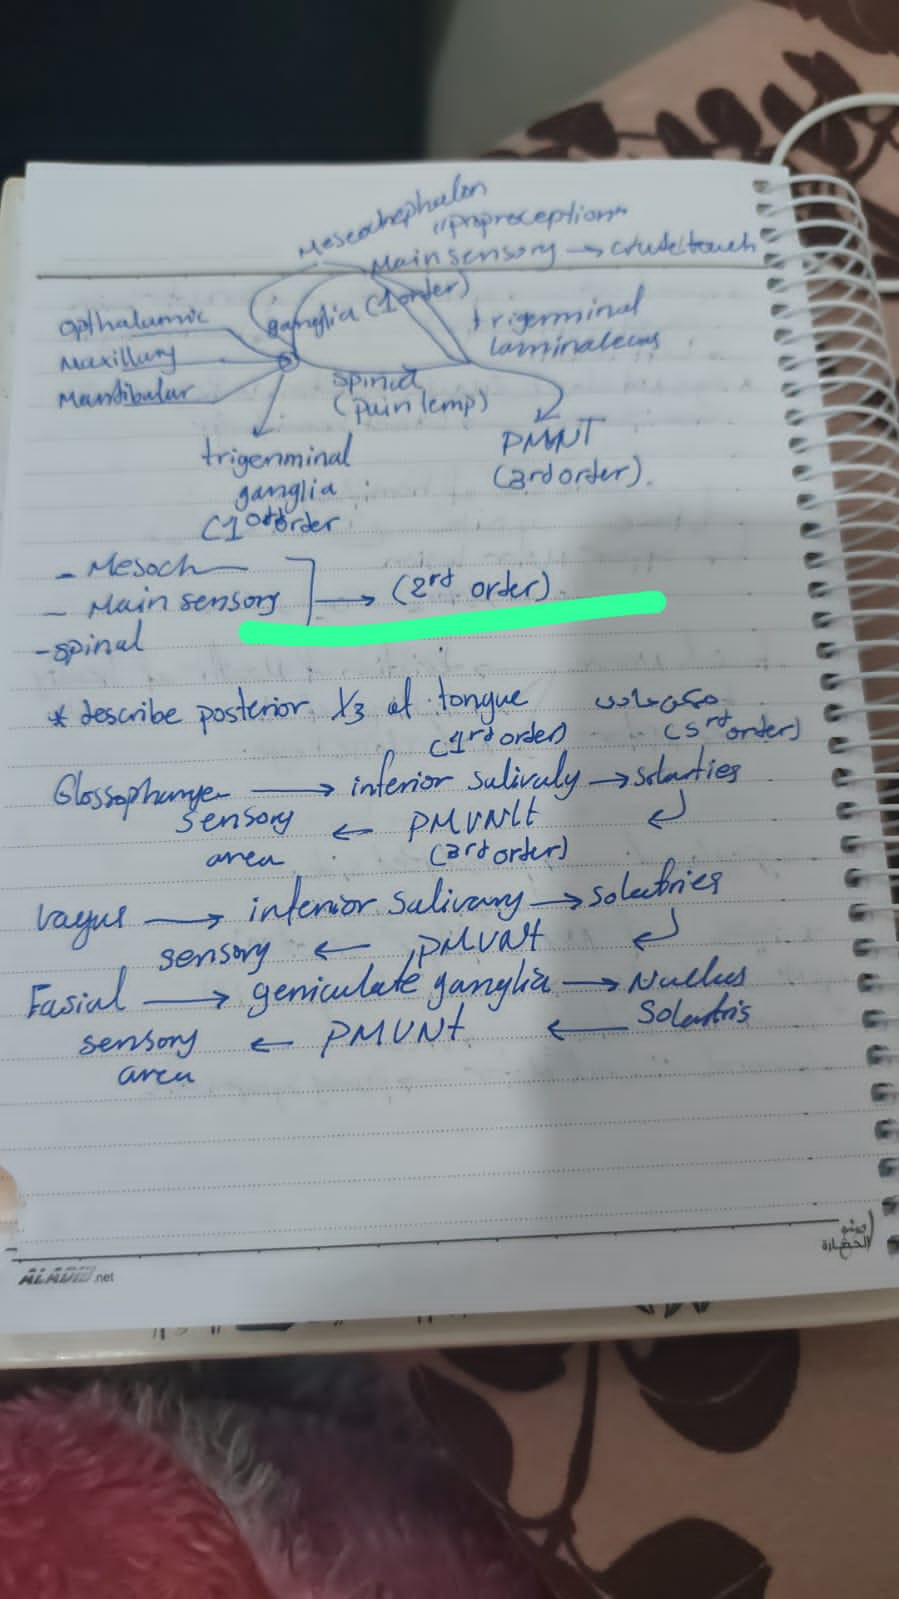 Mesencephalon
"propreception"
Main sensory → crude touch
ganglia (1 order)
opthalamic
Maxillary
Mandibular
trigerminal
laminalecus
spinal
(pain temp)
PMVNT
(3rd order).
trigerminal
ganglia
(1 order
- Mesoch
- Main sensory → (2rd order)
- spinal
* describe posterior 1/3 of tongue
(1rd order) (3rd order)
Glossophange → inferior salivaly → solarties
sensory ← PMVNt
area (3rd order)
vagus → inferior salivary → solatries
sensory ← PMVNt
Fasial → geniculate ganglia → Nuclus
Solatris
sensory ← PMVNt ←
area
ALADIB.net